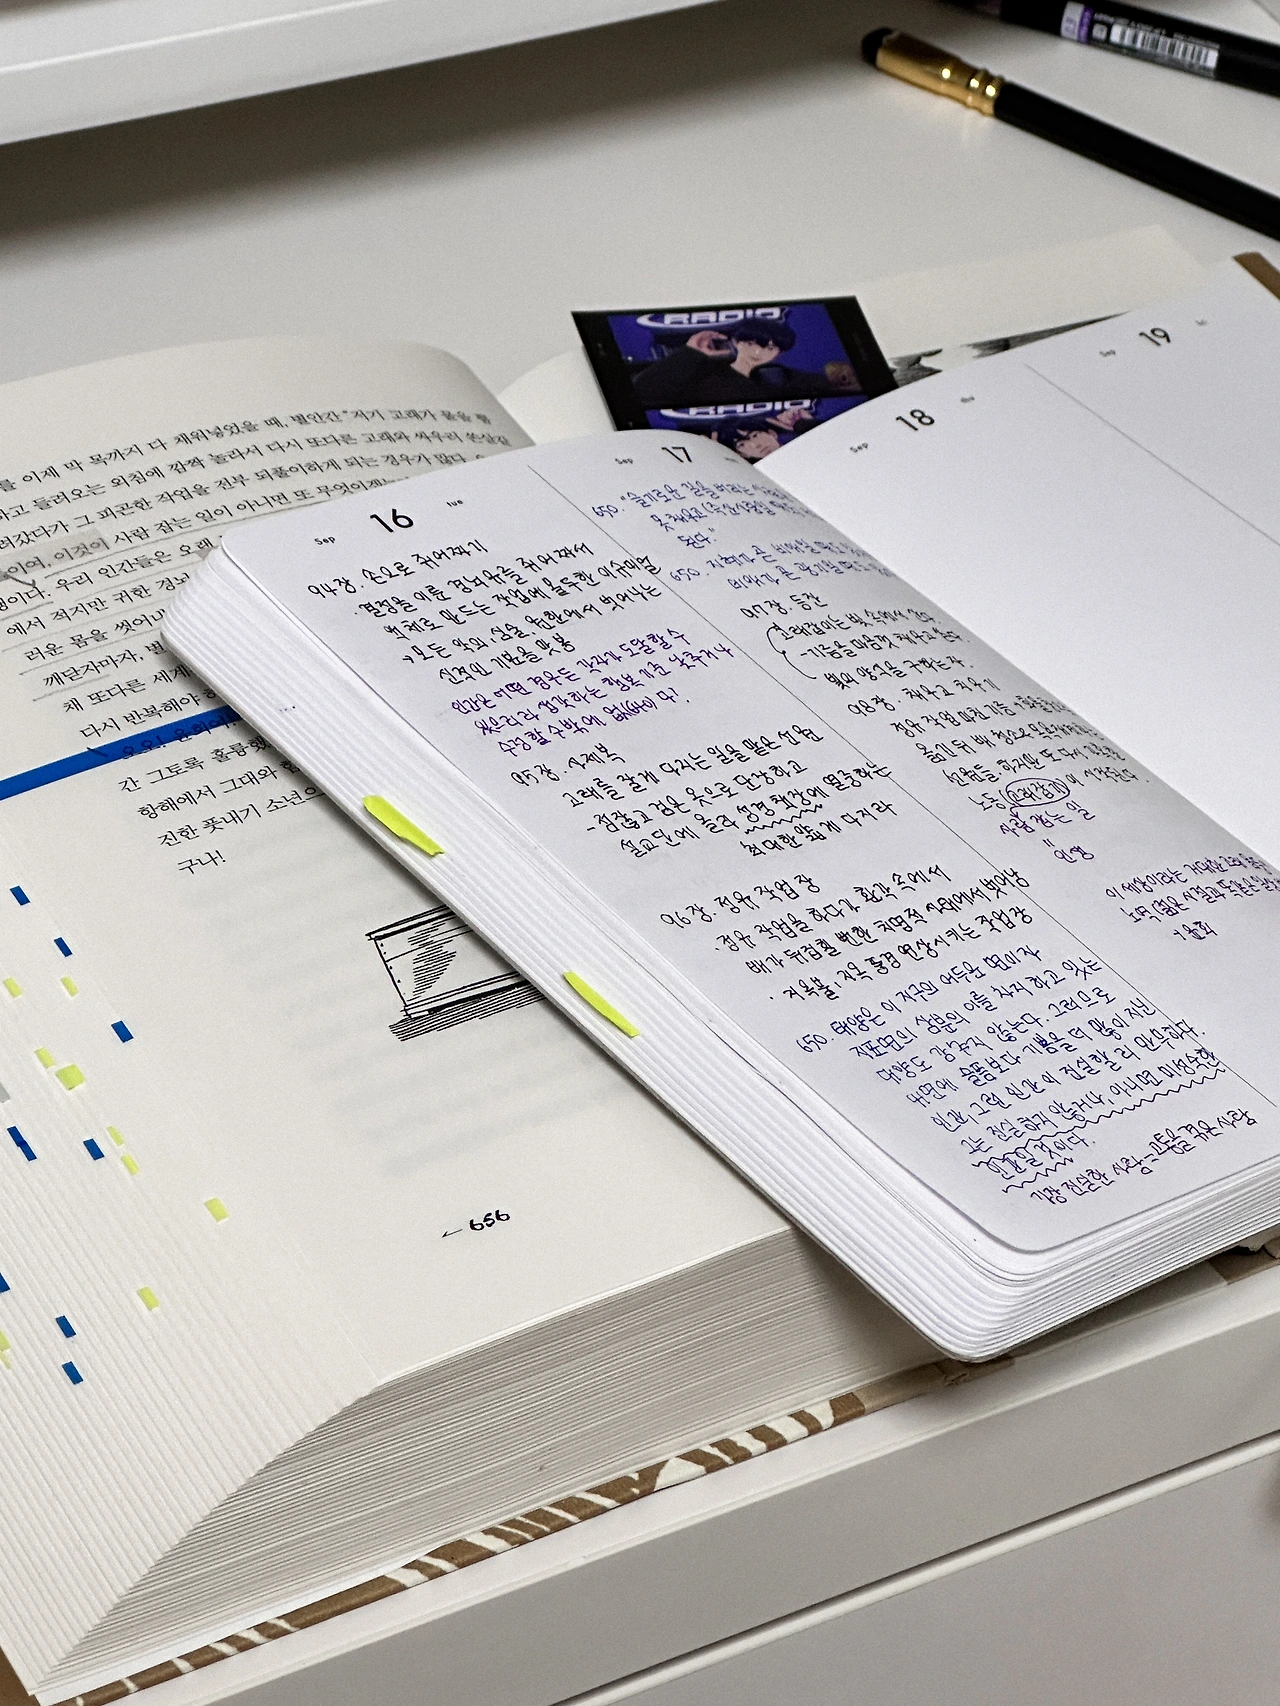 RADIO
RADIO
를 이제 막 목까지 다 채워넣었을 때, 별안간 "저기 고래가 물을
하고 들려오는 외침에 깜짝 놀라서 다시 또다른 고래와 싸우러 쏜살같
려갔다가 그 피곤한 작업을 전부 되풀이하게 되는 경우가 많다.
이여, 이것이 사람 잡는 일이 아니면 또 무엇이겠
우리 인간들은 오래
에서 적지만 귀한 경뇌
러운 몸을 씻어내
깨닫자마자, 별
채 또다른 세계
다시 반복해야 하
오오! 윤회여!
간 그토록 훌륭했
항해에서 그대와 함
진한 풋내기 소년으
구나!
656
Sep 16 Tue
94장. 손으로 쥐어짜기
·결정을 이룬 경뇌유를 쥐어짜서
액체로 만드는 작업에 몰두한 이슈미얼
모든 악의, 심술, 원한에서 벗어나는
신적인 기쁨을 맛봄
인간은 어떤 경우든 각자가 도달할 수
있으리라 생각하는 행복 기준 낮추거나
수정할 수밖에 없(어)다!
95장. 사제복
고래를 잘게 다지는 일을 맡은 선원
-점잖고 검은 옷으로 단장하고
설교단에 올라 성경 책장에 열중하는
최대한 얇게 다지라
96장. 정유 작업장
·정유 작업을 하다가 환각 속에서
배가 뒤집힐 뻔한 치명적 사태에서 벗어남
·지옥불, 지옥 풍경 연상시키는 작업장
650. 태양은 이 지구의 어두운 면이자
지표면의 삼분의 이를 차지하고 있는
대양도 감추지 않는다. 그러므로
내면에 슬픔보다 기쁨을 더 많이 지닌
인간, 그런 인간이 진실할 리 만무하다.
그는 진실하지 않거나, 아니면 미성숙한
인간일 것이다.
가장 진실한 사람 = 고통을 겪은 사람
Sep 17
650. "슬기로운 길을 버리는 사람은
된다."
650. 지혜가 곧 비애일
비애가 곧 광기일
97장. 등잔
고래잡이는 빛 속에서 산다.
-기름을 마음껏 채우고
빛의 양식을 구하는 자.
98장. 채우고 치우기
정유 작업 마친 기름
옮긴 뒤 배 청소
선원들. 하지만 또다시
노동(고래잡기)이 시작된다.
사람 잡는 일
"
인생
이 세상이라는 거대한
노력
→ 윤회
Sep 18 Thu
Sep 19